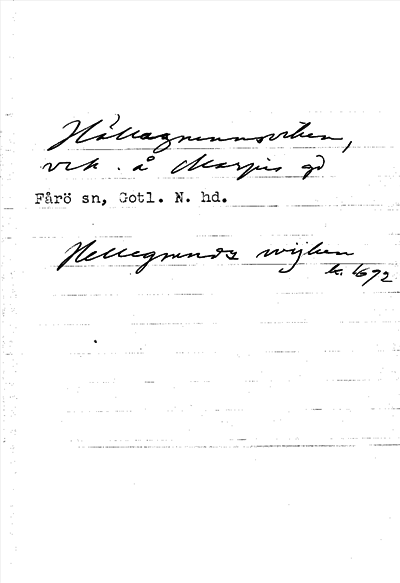 Hällagrunnsviken,
vik å Marpes gd
Fårö sn, Gotl. N. hd.
Hellegrundz wijken
k. 1692